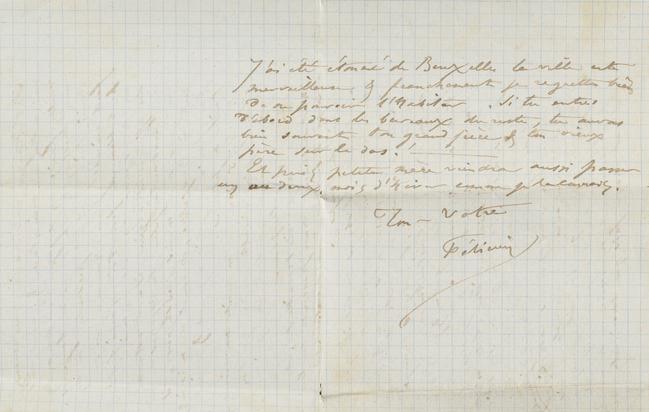 J'ai été étonné de Bruxelles la ville est
merveilleuse & franchement je regrette bien
de ne pouvoir l'habiter. Si tu entres
d'abord dans les bureaux du reste, tu auras
bien souvent ton grand frère & ton vieux
père sur le dos! 
Et puis petite mère viendra aussi passer
un ou deux mois d'hiver
Ton - Votre
Félicien